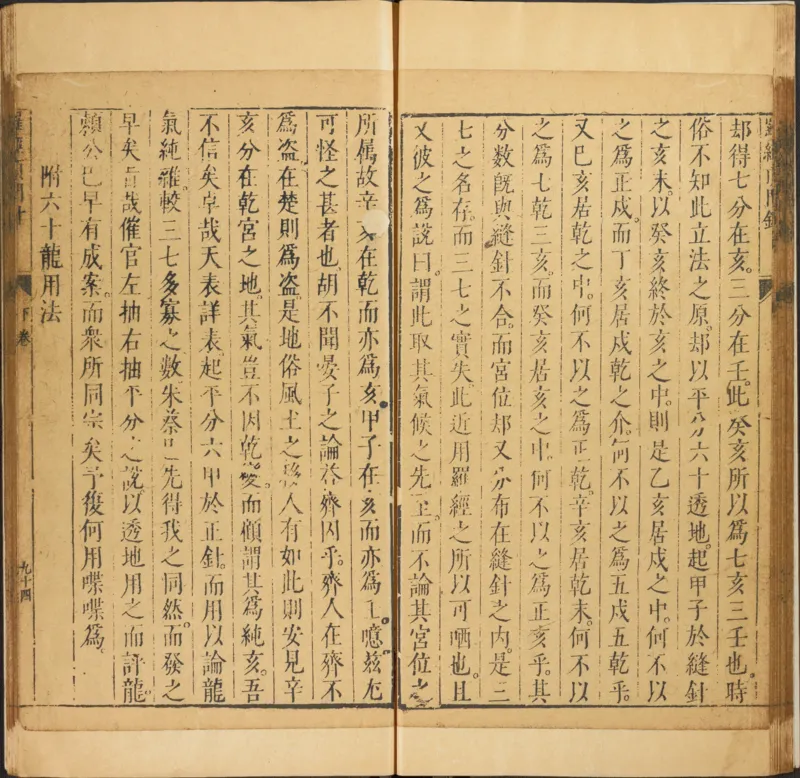 却得七分在亥。三分在壬。此癸亥所以爲七亥三壬也。時
俗不知此立法之原。却以平分六十透地。起甲子於縫針
之亥末。以癸亥終於亥之中。則是乙亥居戍之中。何不以
之爲正戍。而丁亥居戍乾之介。何不以之爲五戍五乾乎。
又巳亥居乾之中。何不以之爲正乾。辛亥居乾末。何不以
之爲七乾三亥。而癸亥居亥之中。何不以之爲正亥乎。其
分數旣與縫針不合。而宮位却又分布在縫針之内。是三
七之名存。而三七之實失。此近用羅經之所以可哂也。且
又彼之爲說曰。謂此取其氣候之先至。而不論其宮位之
所属故辛亥在乾而亦爲亥。甲子在亥而亦爲壬。噫。兹尢
可怪之甚者也。胡不聞晏子之論答齊囚乎。齊人在齊不
爲盗。在楚則爲盗。是地俗風土之移人有如此則安見辛
亥分在乾宮之地。其氣豈不因乾變。而顧謂其爲純亥。吾
不信矣卓哉天表詳表。起平分六甲於正針。而用以論龍
氣純雜。較三七多寡之數朱蔡已先得我之同然。而發之
早矣旨哉催官左抽右抽平分之說。以透地用之而評龍。
頼公巳早有成案。而衆所同宗矣予復何用喋喋爲。
附六十龍用法
下卷
九十四